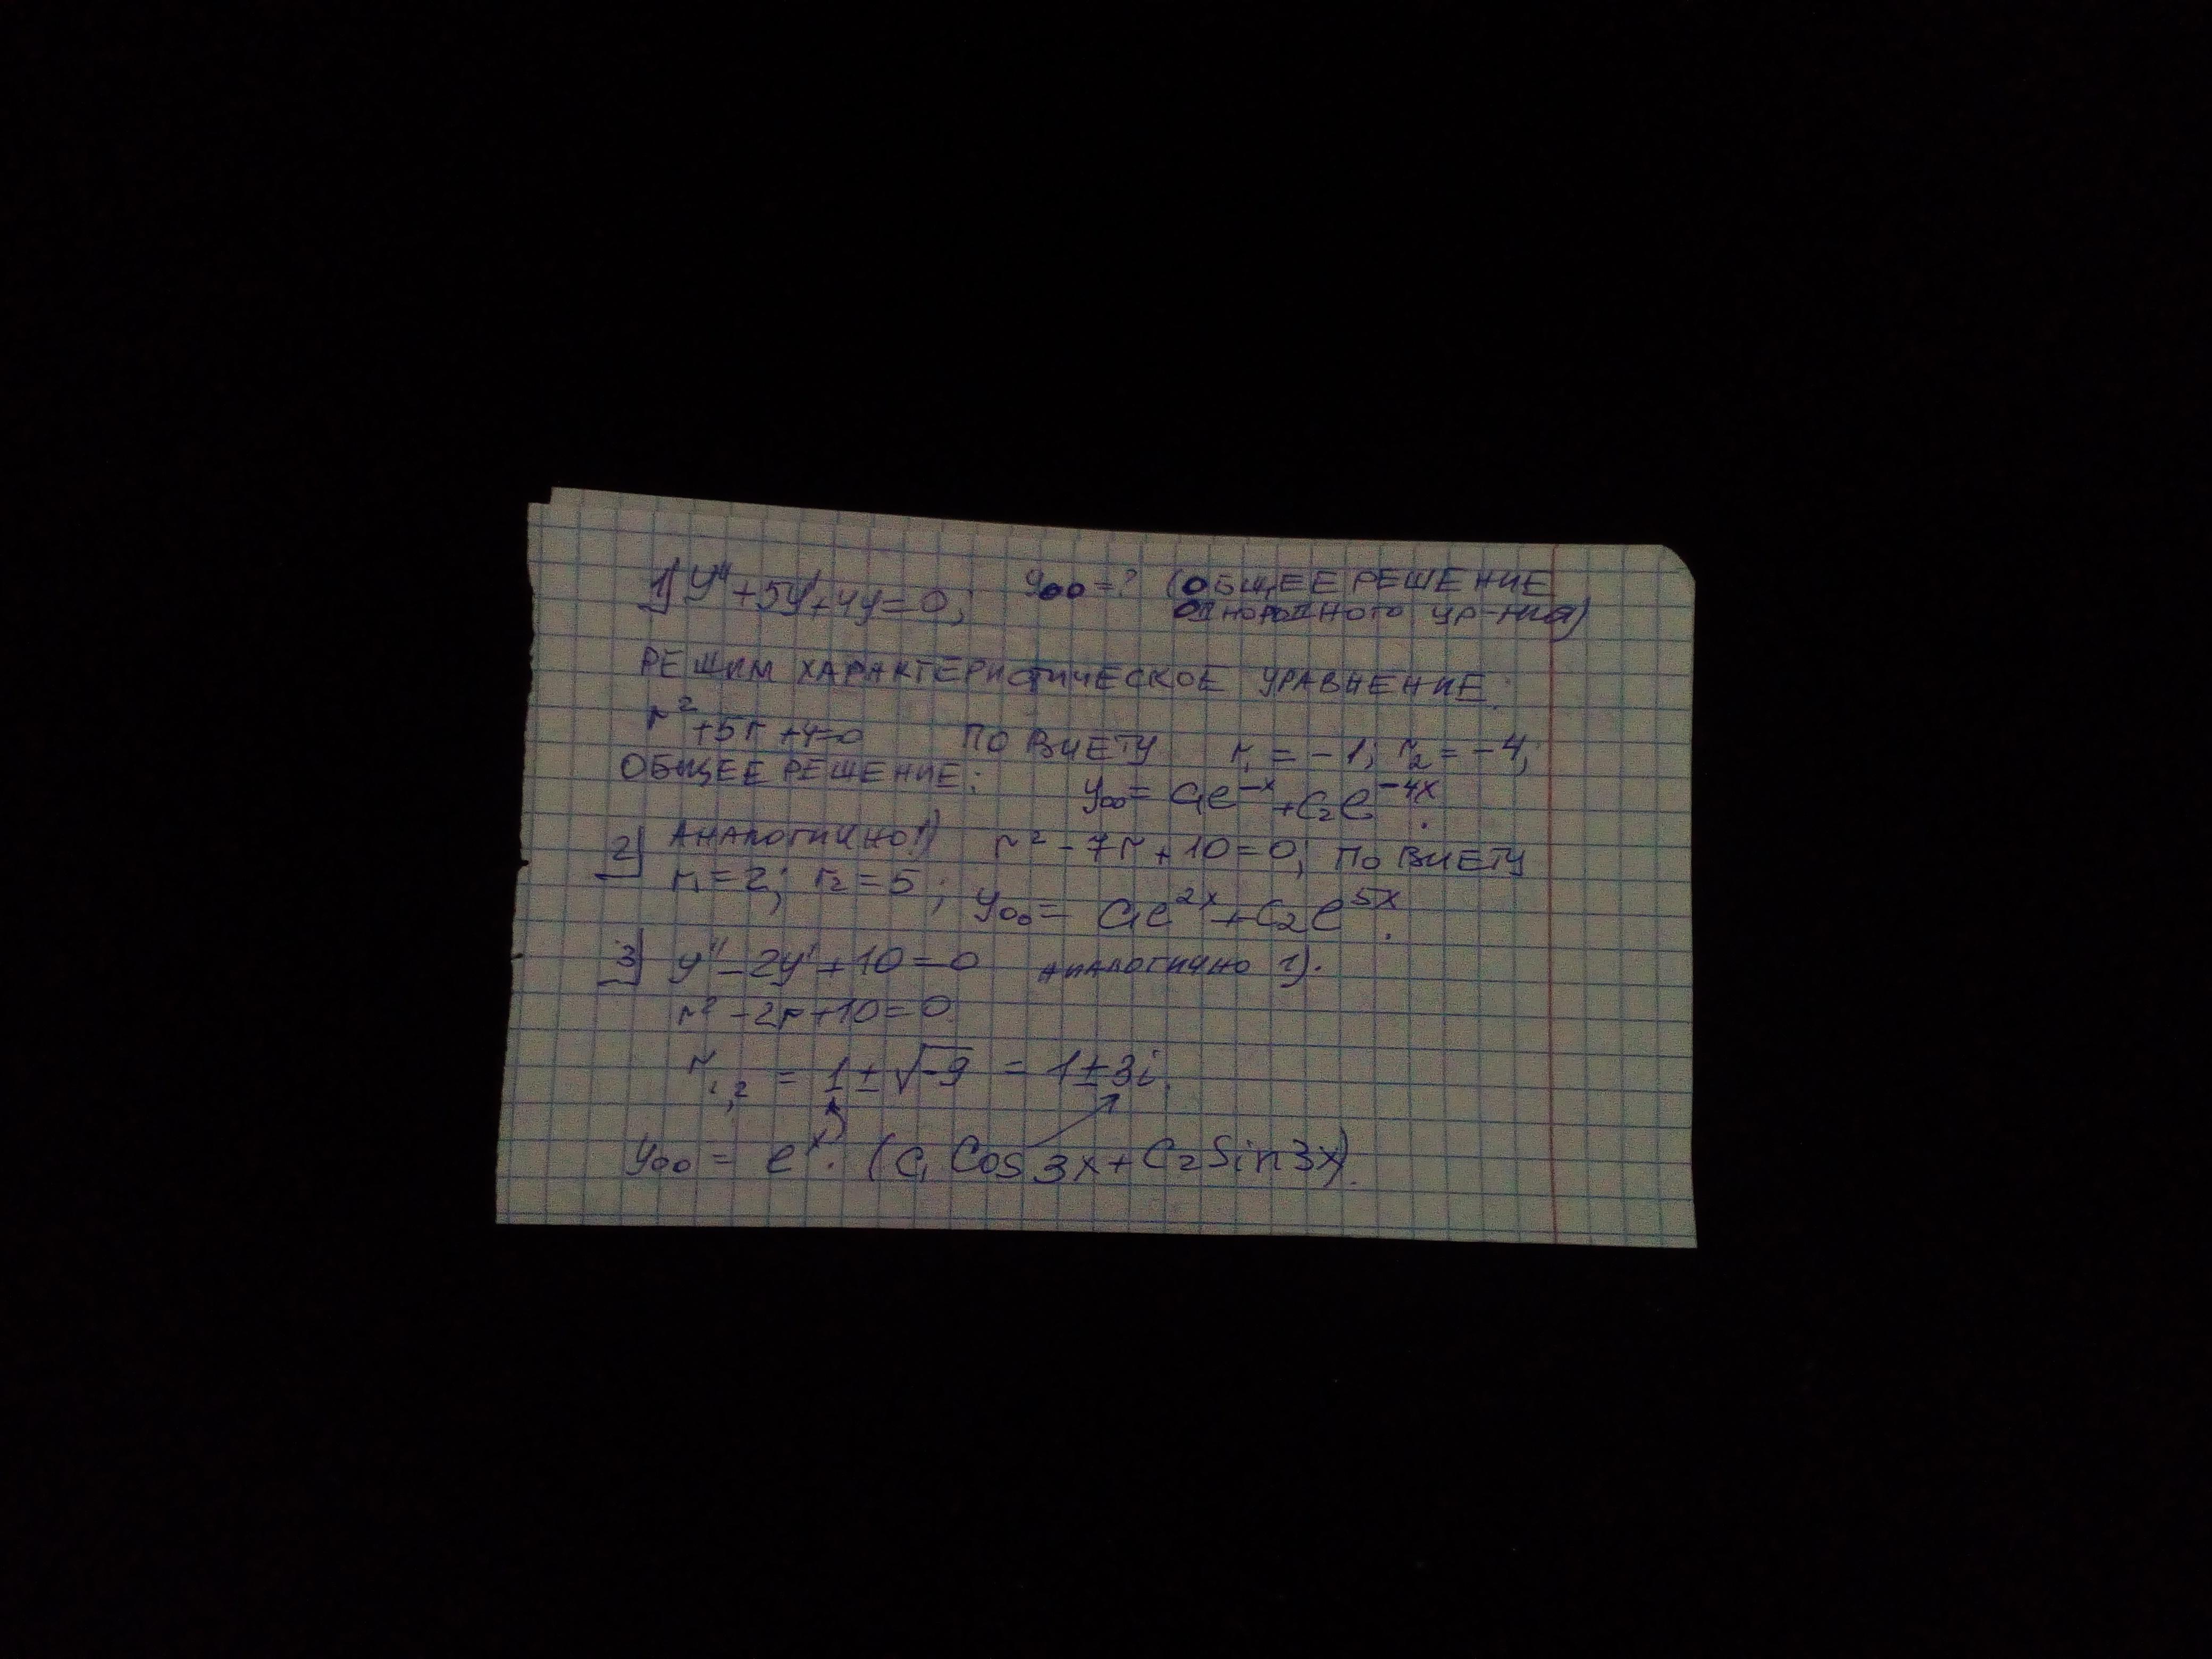 1) y'' + 5y' + 4y = 0; yоо = ? (ОБЩЕЕ РЕШЕНИЕ
ОДНОРОДНОГО УР-НИЯ)
РЕШИМ ХАРАКТЕРИСТИЧЕСКОЕ УРАВНЕНИЕ:
r² + 5r + 4 = 0 ПО ВИЕТУ r₁ = -1; r₂ = -4;
ОБЩЕЕ РЕШЕНИЕ: yоо = C₁e⁻ˣ + C₂e⁻⁴ˣ.
2) АНАЛОГИЧНО 1) r² - 7r + 10 = 0; ПО ВИЕТУ
r₁ = 2; r₂ = 5; yоо = C₁e²ˣ + C₂e⁵ˣ.
3) y'' - 2y' + 10 = 0 АНАЛОГИЧНО 1).
r² - 2r + 10 = 0.
r₁,₂ = 1 ± √-9 = 1 ± 3i.
yоо = eˣ · (C₁ Cos 3x + C₂ Sin 3x).